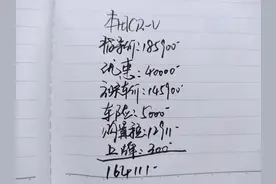 本田CR-V
指导价:185900-
优惠:40000-
裸车价:145900-
车险:5000-
购置税:12911-
上牌:300-
164111-